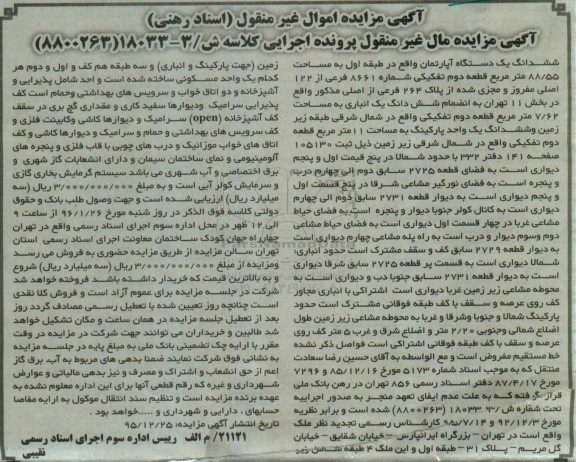 آگهی مزایده اموال غیر منقول (اسناد رهنی)
آگهی مزایده مال غیر منقول پرونده اجرایی کلاسه ش/۳-۱۸۰۳۳(۸۸۰۰۲۶۳)
ششدانگ یک دستگاه آپارتمان واقع در طبقه اول به مساحت
۸۸/۵۵ متر مربع قطعه دوم تفکیکی شماره ۸۶۶۱ فرعی از ۱۲۲
اصلی مفروز و مجزی شده از پلاک ۲۶۳ فرعی از اصلی مذکور واقع
در بخش ۱۱ تهران به انضمام شش دانگ یک انباری به مساحت
۷/۶۲ متر مربع قطعه دوم تفکیکی واقع در شمال شرقی طبقه زیر
زمین وششدانگ یک واحد پارکینگ به مساحت ۱۱متر مربع قطعه
دوم تفکیکی واقع در شمال شرقی زیر زمین ذیل ثبت ۱۰۵۱۳۰
صفحه ۱۴۱ دفتر ۳۳۲ با حدود شمالا در پنج قسمت اول و پنجم
دیواری است به فضای قطعه ۲۷۲۵ سابق دوم الی چهارم درب
و پنجره است به فضای نورگیر مشاعی شرقا در پنج قسمت اول
دیواری است به دیوار قطعه ۲۷۳۱ سابق دوم الی چهارم
دیواری است به کانال کولر جنوبا دیوار و پنجره است به فضای حیاط
مشاعی غربا در چهار قسمت اول دیواری است به فضای حیاط مشاعی
دوم وسوم دیوار و درب است به راه پله مشاعی چهارم دیواری است
به دیوار قطعه ۲۷۲۱ سابق کف و سقف مشترک است حدود انباری:
شمالا دیواری است به قسمت پر قطعه ۲۷۲۵ سابق شرقا دیواری
است به دیوار قطعه ۲۷۳۱ سابق جنوبا دب و دیواری است به
محوطه مشاعی زیر زمین غربا دیواری است اشتراکی با انباری مجاور
کف روی عرصه و سقف با کف طبقه فوقانی مشترک است حدود
پارکینگ شمالا و جنوبا وشرقا و غربا به محوطه مشاعی زیر زمین طول
اضلاع شمالی وجنوبی ۲/۲۰ متر و اضلاع شرق و غرب ۵ متر کف روی
عرصه و سقف با کف طبقه فوقانی اشتراکی است فواصل ذکر نشده
خط مستقیم مفروض است و مع الواسطه به آقای حسین رضا سعادت
منتقل که به موجب اسناد شماره ۵۱۷۳ مورخ ۸۵/۱۲/۱۶ و ۷۲۹۶
مورخ ۸۷/۴/۱۷ دفتر اسناد رسمی ۸۵۶ تهران در رهن بانک ملی
قرار گرفته که به علت عدم ایفای تعهد منجر به صدور اجراییه
تحت شماره ش/۳ ۱۸۰۳۳ (۸۸۰۰۲۶۳) شده است و برابر نظریه
مورخ ۹۲/۱۲/۳ و ۹۵/۷/۱۴ کارشناس رسمی تجدید نظر ملک
واقع است در تهران - بزرگراه ایرانپارس - خیابان شقایق - خیابان
گل مریم - پلاک ۳۱ - طبقه اول و این ملک ۴ طبقه شامل زیر
زمین (جهت پارکینگ و انباری) و سه طبقه هم کف و اول و دوم هر
کدام یک واحد مسکونی ساخته شده است و احد شامل پذیرایی و
آشپزخانه و دو اتاق خواب و سرویس های بهداشتی وحمام است کف
پذیرایی سرامیک ودیوارها سفید کاری و مقداری گچ بری در سقف
کف آشپزخانه (open) سرامیک و دیوارها کاشی وکابینت فلزی و
کف سرویس های بهداشتی و حمام و سرامیک و دیوارها کاشی و کف
اتاق های خواب موزانیک و درب های چوبی با قاب فلزی و پنجره های
آلومینیومی و نمای ساختمان سیمان و دارای انشعابات گاز شهری و
برق اختصاصی و آب شهری می باشد سیستم گرمایش بخاری گازی
و سرمایش کولر آبی است و به مبلغ ۳/۰۰۰/۰۰۰/۰۰۰ ریال (سه
میلیارد ریال) ارزیابی شده است و جهت وصول طلب بانک و حقوق
دولتی کلاسه فوق الذکر در روز شنبه مورخ ۹۶/۱/۲۶ از ساعت ۹
الی ۱۲ ظهر در محل اداره سوم اجرای اسناد رسمی واقع در تهران
چهارراه جهان کودک ساختمان معاونت اجرای اسناد رسمی استان
تهران سالن مزایده از طریق مزایده حضوری به فروش می رسد
ومزایده از مبلغ ۳/۰۰۰/۰۰۰/۰۰۰ ریال (سه میلیارد ریال) شروع
و به بالاترین قیمت که خریدار داشته باشد فروخته خواهد شد
شرکت در جلسه مزایده برای عموم آزاد است و فروش کلا نقدی
است چنانچه روز تعیین شده با تعطیل رسمی مصادف گردد روز
بعد از تعطیل جلسه مزایده در همان ساعت و مکان تشکیل خواهد
شد طالبین و خریداران می توانند جهت شرکت در مزایده در وقت
مقرر با ارایه چک تضمینی بانک ملی به مبلغ پایه در جلسه مزایده
به نشانی فوق شرکت نمایند ضمنا بدهی های مربوط به آب، برق گاز
اعم از حق انشعاب و اشتراک و مصرف و نیز بدهی مالیاتی و عوارض
شهرداری و غیره که رقم قطعی آنها برای این اداره معلوم نشده به
عهده برنده مزایده است و تنظیم سند انتقال موکول به ارایه مفاصا
حسابهای ، دارایی و شهرداری و .....خواهد بود .
تاریخ انتشار آگهی مزایده : ۹۵/۱۲/۲۵
۲۱۱۲۱/ م الف رییس اداره سوم اجرای اسناد رسمی
نقیبی